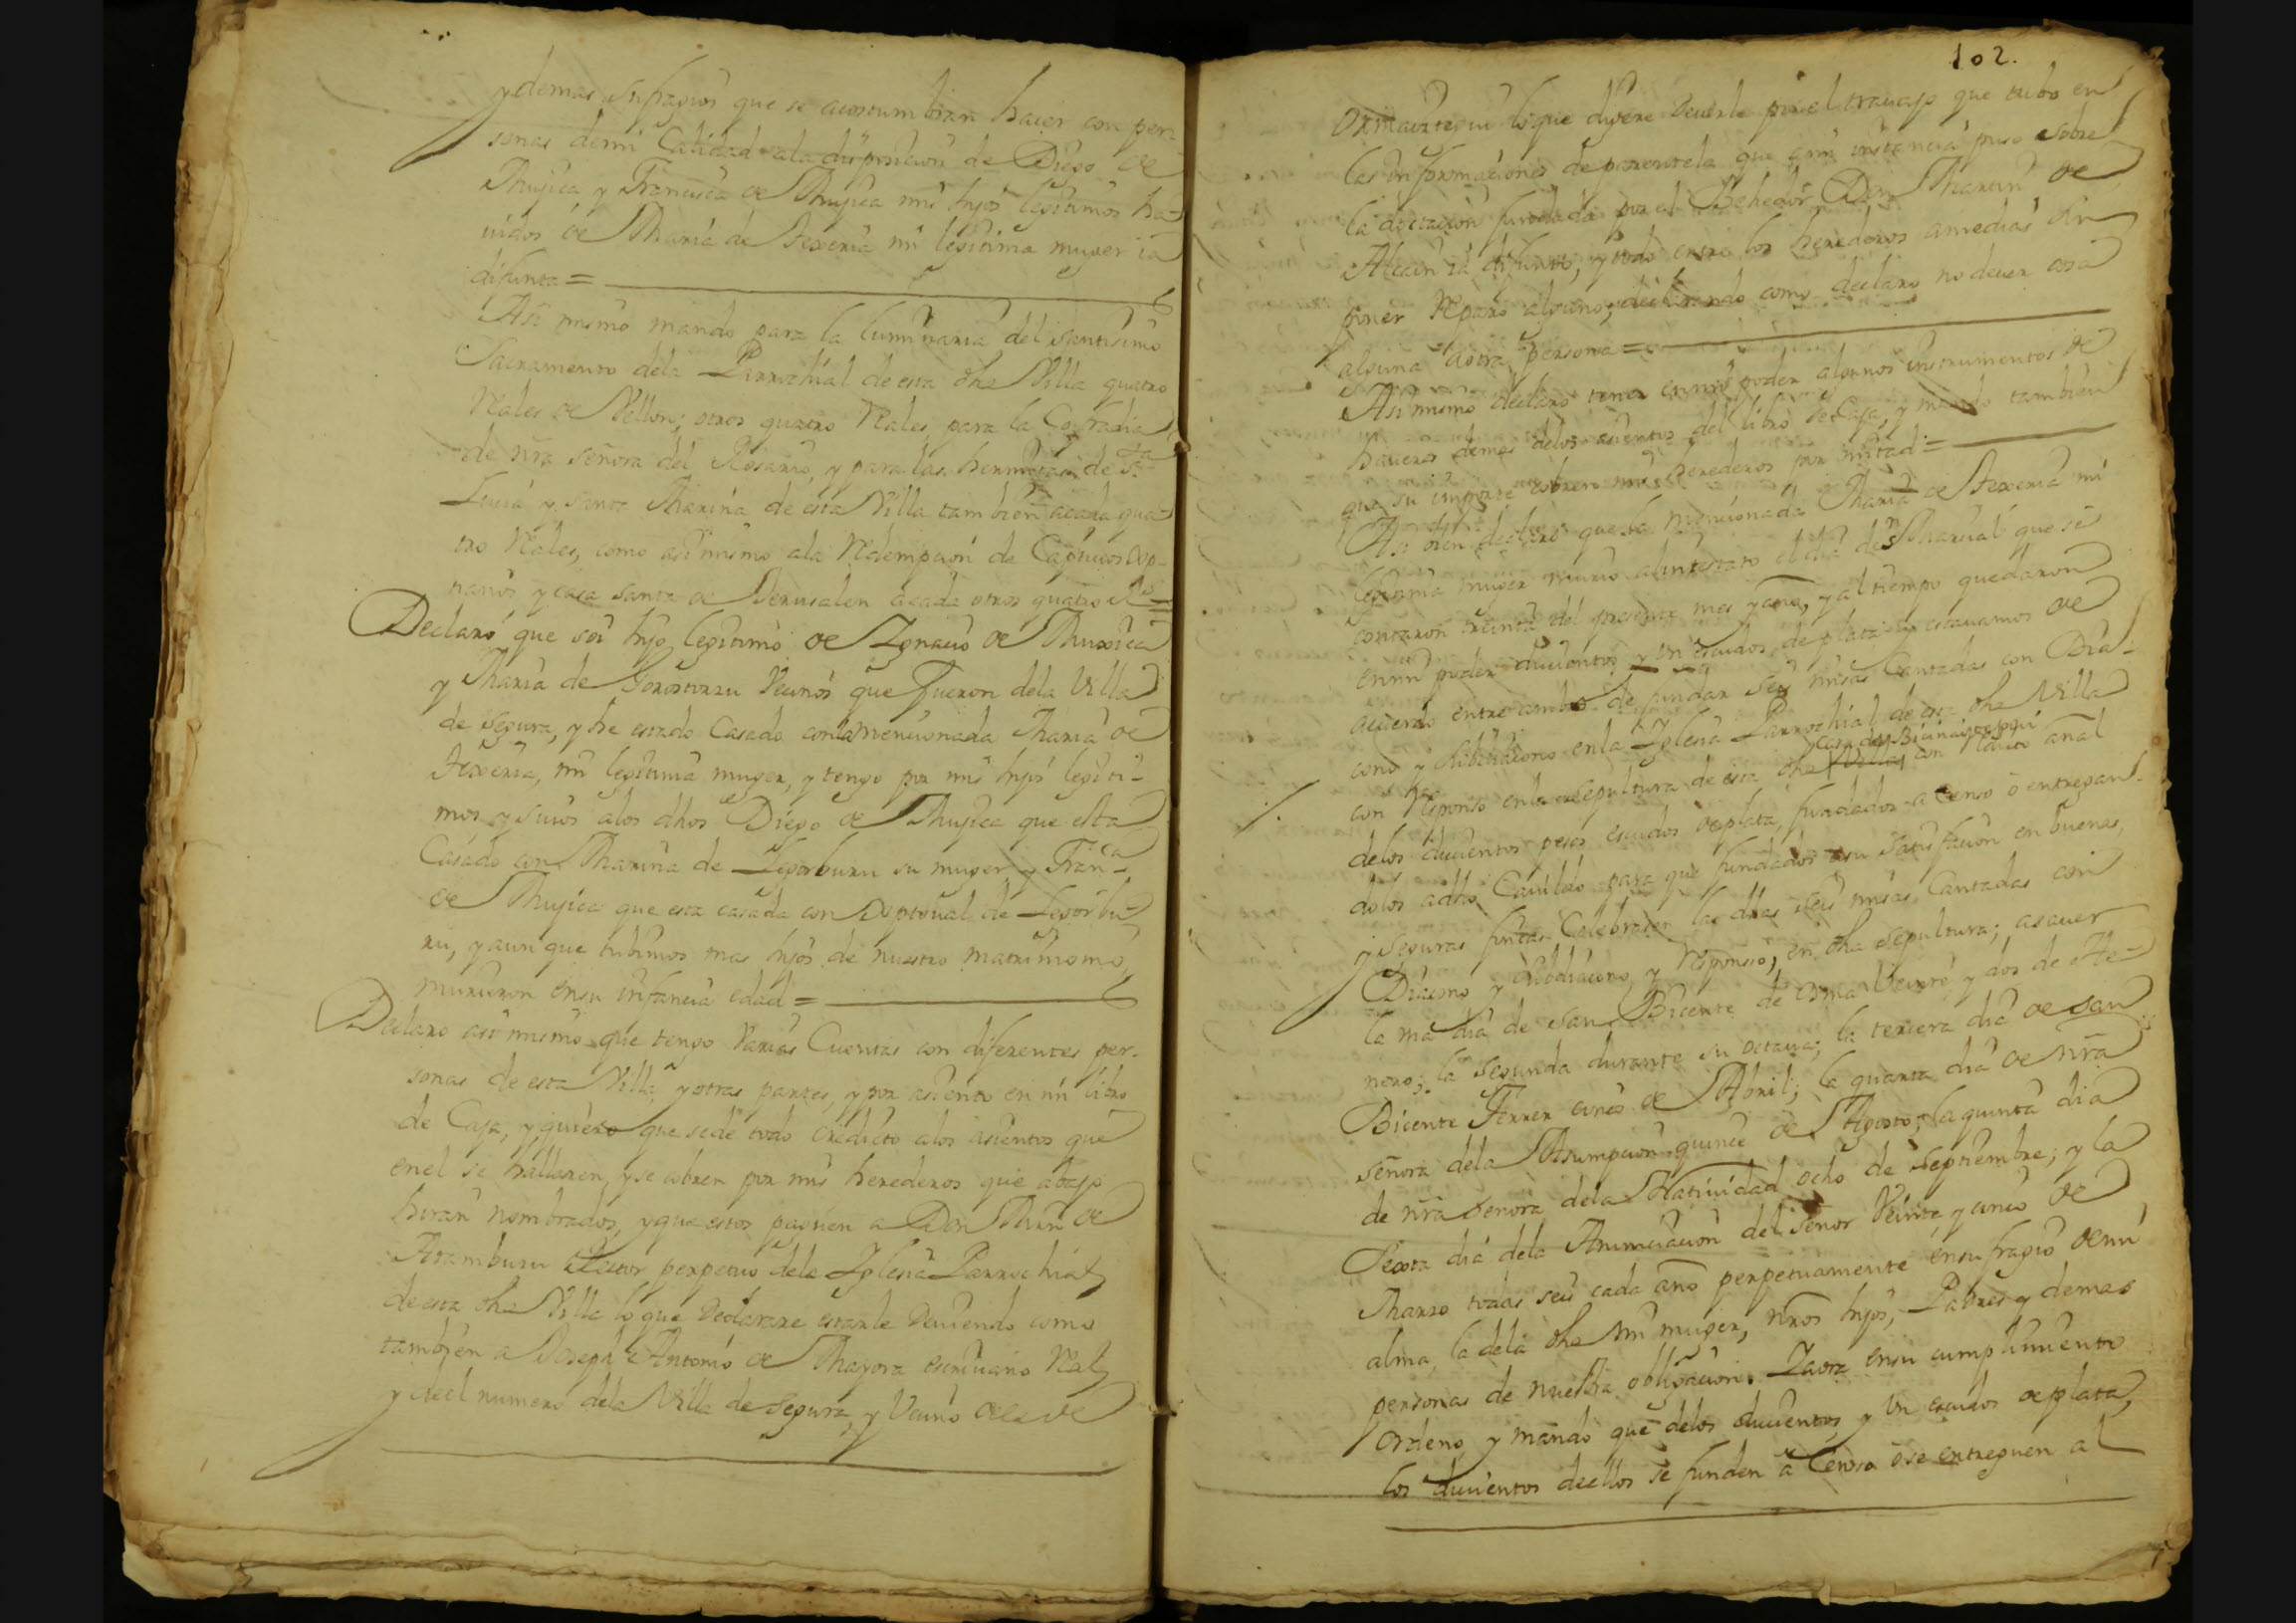 y demas sufragios que se acostumbran hacer con per-
sonas de mi Calidad ala disposicion de Diego de
Mujica y Francisca de Mujica mis hijos legitimos ha-
uidos de Maria de Texeria mi legitima muger ia
difunta =
Asi mismo mando para la luminaria del santisimo
Sacramento dela Parrochial de esta dha Villa quatro
Reales de Vellon; otros quatro Reales para la Cofradia
de nra señora del Rosario, y para las hermitas de sta
Lucia y santa Marina de esta Villa tambien acada qua-
tro Reales, como asi mismo ala Redempcion de Captiuos Xp-
tianos y casa santa de Jerusalen acada otros quatro Rs =
Declaro que soi hijo legitimo de Ignacio de Muxica
y Maria de Gorostarzu Vecinos que fueron dela Villa
de Segura, y he estado Casado con la mencionada Maria de
Texeria, mi legitima muger, y tengo por mis hijos legiti-
mos y suios alos dhos Diego de Mujica que esta
Casado con Marina de Legorburu su muger, y Franca
de Mujica que esta casada con Xptoual de Legorbu-
ru, y aun que tubimos mas hijos de nuestro matrimonio,
murieron en su infancia edad =
Declaro asi mismo que tengo Varias Cuentas con diferentes per-
sonas de esta Villa y otras partes, y por asiento en mi libro
de Caja, y quiero que se de todo credicto alos asientos que
en el se hallaren, y se cobren por mis herederos que abajo
hiran nombrados, y que estos paguen a Don Mrn de
Aramburu Rector perpetuo dela Iglesia Parrochial
de esta dha Villa lo que Declarare estarle Deuiendo como
tambien a Joseph Antonio de Mayora escriuano Real
y del numero dela Villa de Segura, y Vecino de la de
102.
Ormaiztegui lo que dijere Deuerle por el trauajo que tubo en
las informaciones de parentela que a mi instancia puso sobre
la dotacion fundada por el Vehedor Don Martin de
Alcain ia difunto, y todo entre los herederos a medias sin
poner Reparo alguno; declarando como declaro no deuer cosa
alguna aotra persona =
Asi mismo declaro tener en mi poder algunos instrumentos de
haueres demas delos asientos del libro de Caja, y mando tambien
que su importe cobren mis herederos por mitad =
Asi bien declaro que la mencionada Maria de Texeria mi
legitima muger murio abintestato el dia de Sn Marcial que se
contaron treinta del presente mes y año, y al tiempo quedaron
en mi poder ducientos y Un escudos de plata y estauamos de
acuerdo entre ambos de fundar seis misas Cantadas con Dia-
cono y subdiacono en la Iglesia Parrochial de esta dha Villa
y casa de Bicinaiztegui
con Responso en la sepultura de esta dha Villa, con rredito anal
delos ducientos pesos escudos de plata, fundados a Censo o entregan-
dolos adho Cauildo para que fundados a su satisfacion en buenas,
y seguras fincas Celebrasen las dhas seis misas Cantadas con
Diacono y subdiacono y Responso, en dha sepultura; a sauer
la una dia de san Bicente de Veinte y dos de He-
nero; la segunda durante su octaua; la tercera dia de san
Bicente Ferrer cinco de Abril; la quarta dia de nra
señora dela Asumpcion quince de Agosto; la quinta dia
de nra señora dela Natiuidad ocho de septiembre; y la
Sexta dia dela Anunciacion del señor Veinte y cinco de
Marzo todas seis cada año perpetuamente en sufragio de mi
alma, la dela dha mi muger, nros hijos, Padres y demas
personas de nuestra obligacion. Y aora en su cumplimiento
ordeno y mando que delos ducientos y Un escudos de plata,
los ducientos de ellos se funden a Censo o se entreguen al